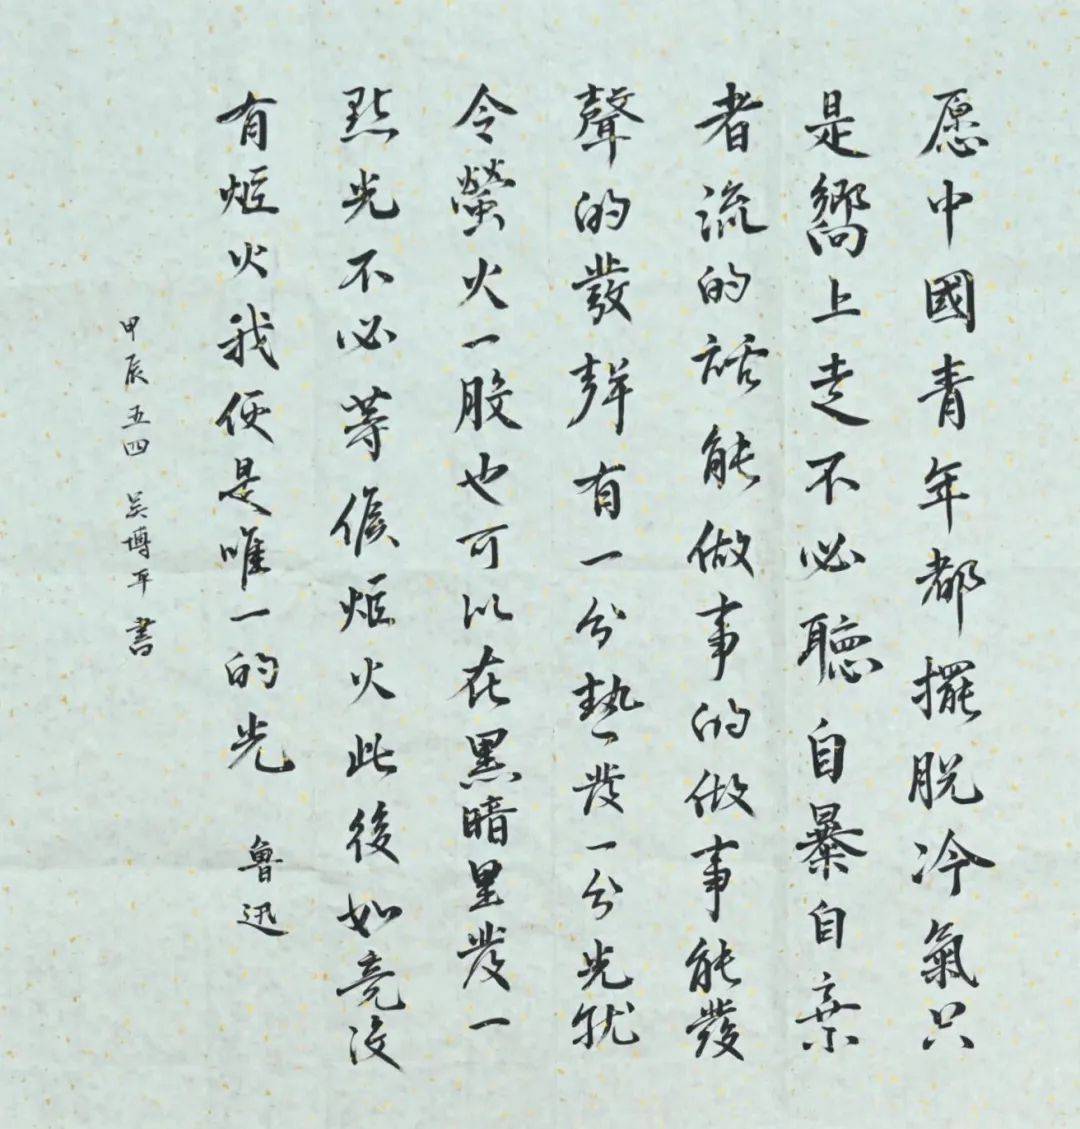 愿中國青年都擺脱冷氣只
是嚮上走不必聽自暴自棄
者流的話能做事的做事能發
聲的發聲有一分熱發一分光就
令螢火一般也可以在黑暗里發一
點光不必等候炬火此後如竟没
有炬火我便是唯一的光 魯迅
甲辰五四 吴博平書